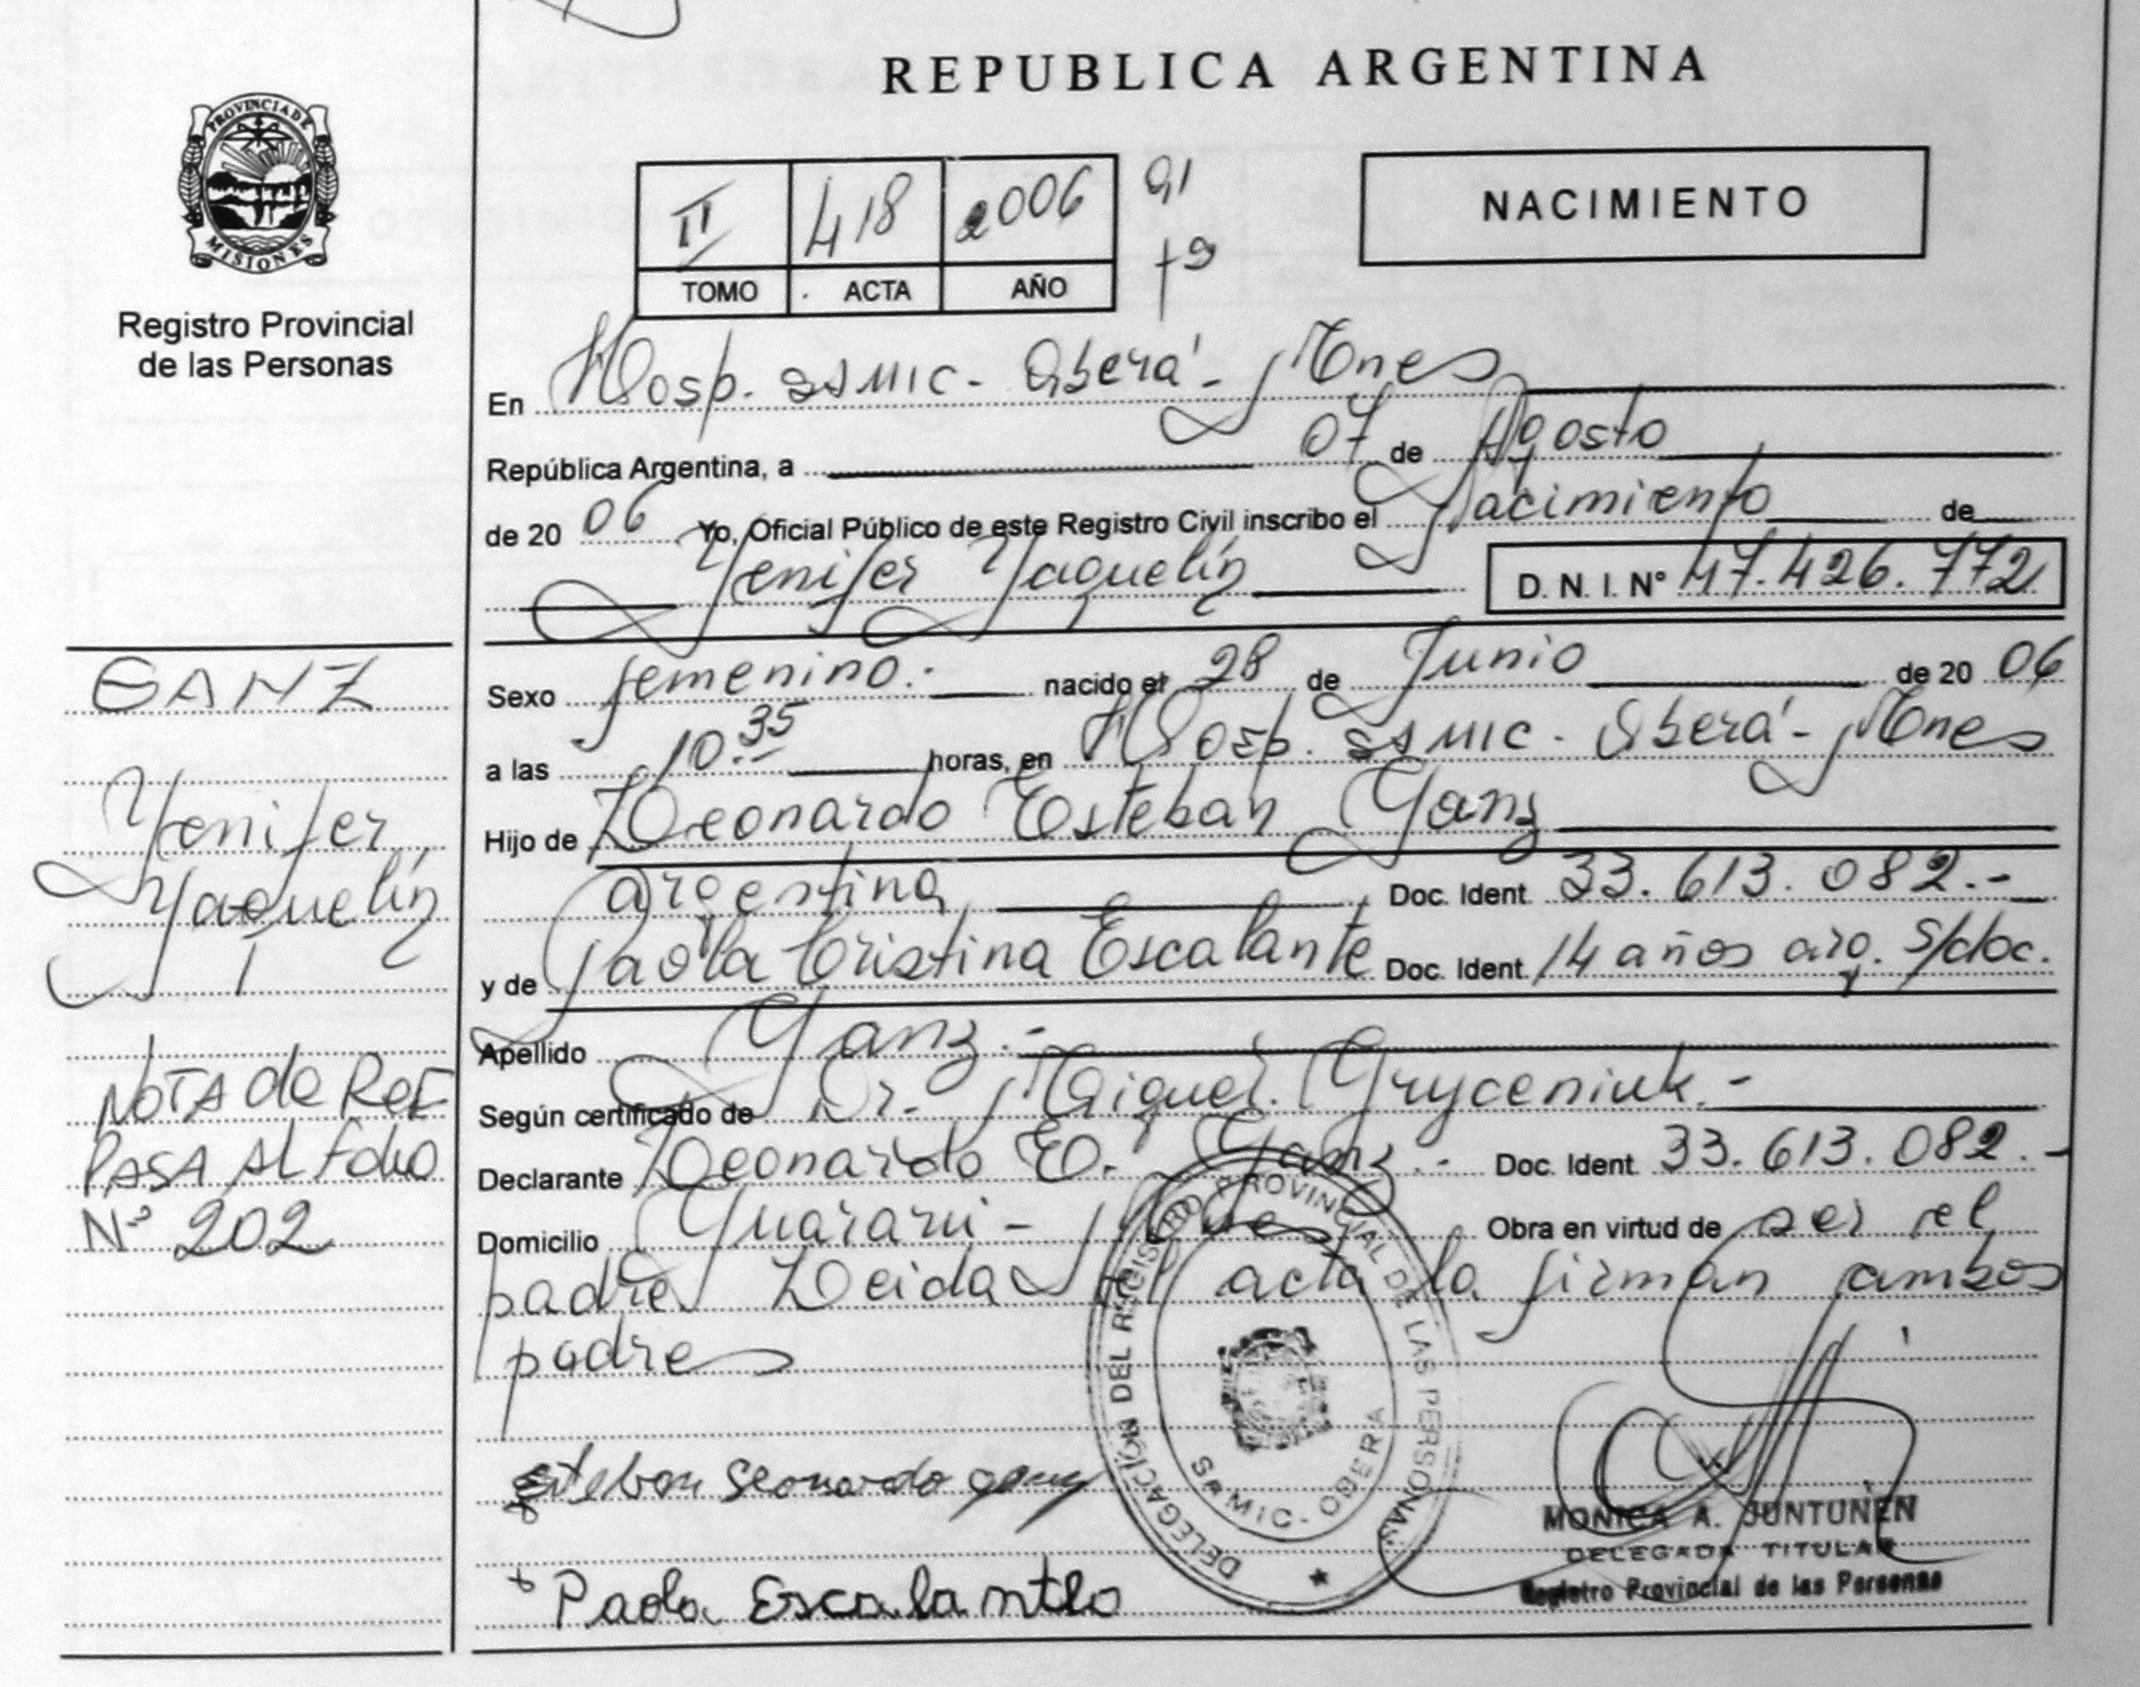 REPUBLICA ARGENTINA
PROVINCIA DE
MISIONES
Registro Provincial
de las Personas
II 418 2006
TOMO ACTA AÑO
NACIMIENTO
En Hosp. SAMIC - Oberá - Mnes
República Argentina, a 07 de Agosto
de 20 06 Yo, Oficial Público de este Registro Civil inscribo el Nacimiento de
Yenifer Yaquelín D. N. I. Nº 47.426.772
GANZ
Yenifer
Yaquelín
NOTA de REF
PASA AL Folio
Nº 202
Sexo femenino.- nacido el 28 de Junio de 20 06
a las 10.35 horas, en Hosp. SAMIC - Oberá - Mnes
Hijo de Leonardo Esteban Ganz
argentina Doc. Ident. 33.613.082.-
y de Paola Cristina Escalante Doc. Ident. 14 años arg. s/doc.
Apellido Ganz.-
Según certificado de Dr. Miguel Gryceniuk.-
Declarante Leonardo E. Ganz.- Doc. Ident. 33.613.082.-
Domicilio Guaraní - Mnes Obra en virtud de ser el
padre Leida el acta la firman ambos
padres
Esteban Leonardo ganz
Paola Escalante
DELEGACIÓN DEL REGISTRO PROVINCIAL DE LAS PERSONAS
SAMIC - OBERA
MONICA A. JUNTUNEN
DELEGADA TITULAR
Registro Provincial de las Personas